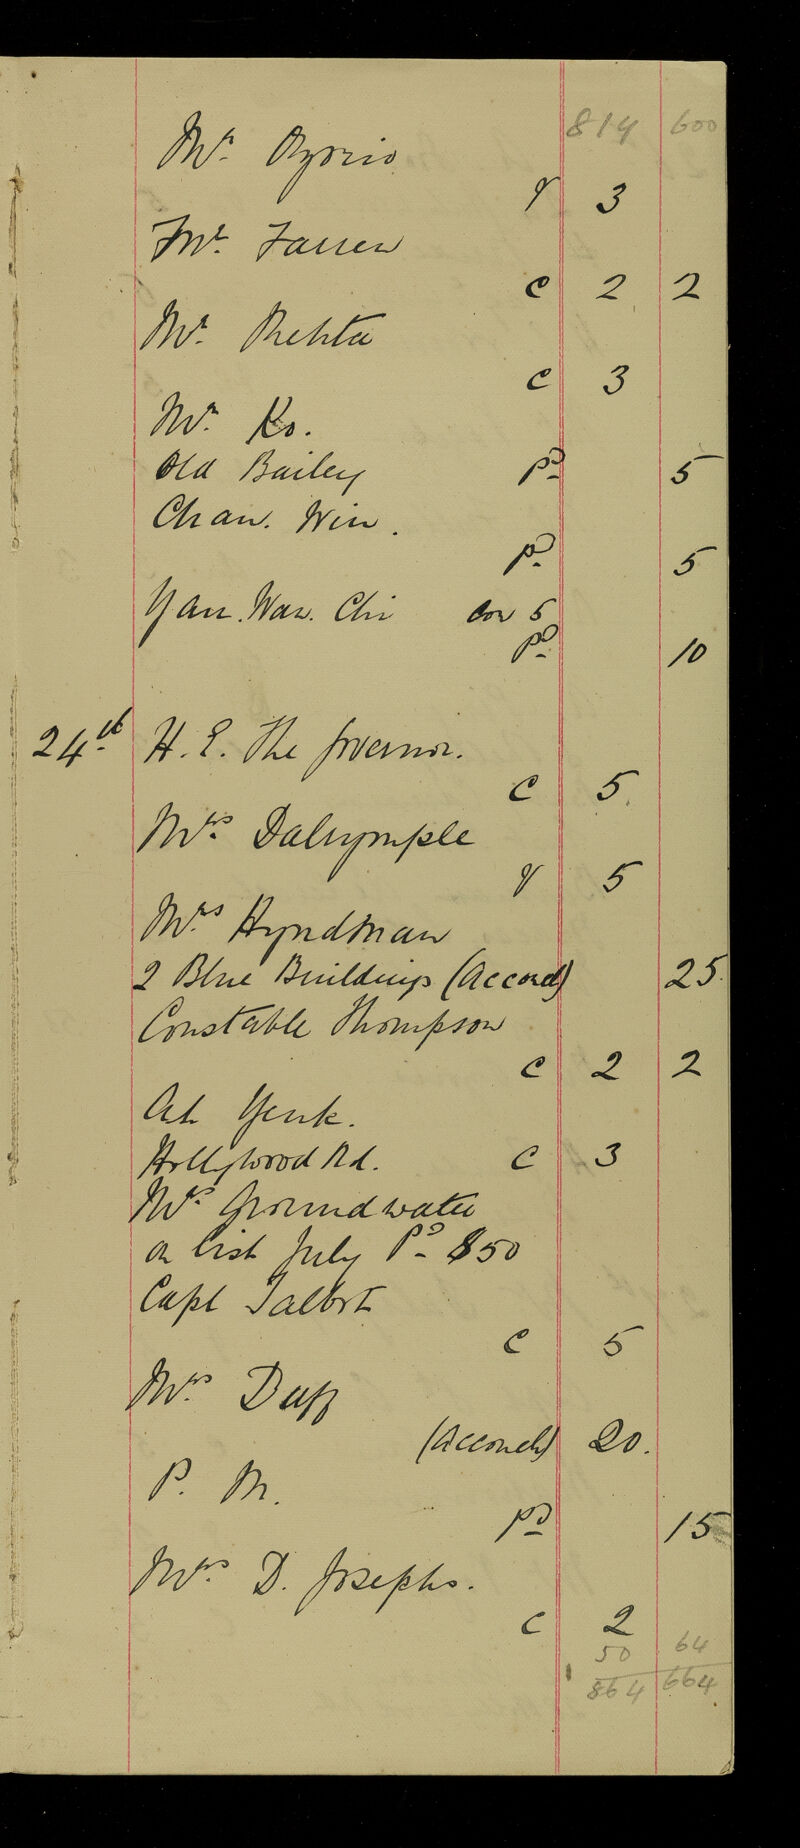 814 600
Mr.
V 3
Mr. Farren
C 2 2
Mr. Rehita
C 3
Mr. Ko.
Old Bailey Pd 5
Chan. Win.
Pd 5
Yan. Wan. Chi con 5
Pd 10
24th H. E. The Governor.
C 5.
Mrs Dalrymple
V 5
Mrs Hyndman
2 Blue Buildings (Accouch) 25.
Constable Thompson
C 2 2
Ah Yeuk.
Hollywood Rd. C 3
Mrs Groundwater
a list July Pd $50
Capt Talbot
C 5
Mrs Duff
(Accouch) 20.
P. M.
Pd 15
Mrs D. Josephs.
C 2
50 64
864 664